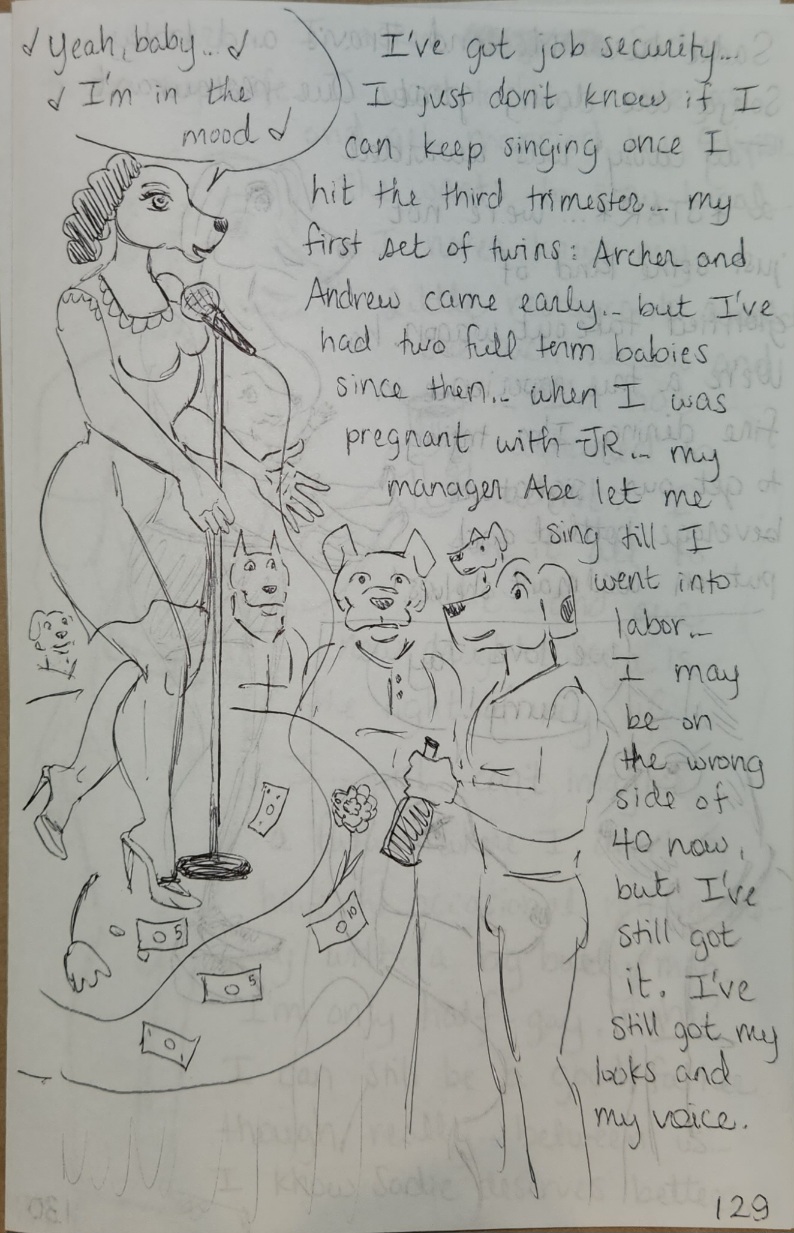 ♪ Yeah, baby... ♪
♪ I'm in the
mood ♪
I've got job security...
I just don't know if I
can keep singing once I
hit the third trimester... my
first set of twins: Archer and
Andrew came early... but I've
had two full term babies
since then... when I was
pregnant with JR... my
manager Abe let me
sing till I
went into
labor...
I may
be on
the wrong
side of
40 now,
but I've
still got
it. I've
still got my
looks and
my voice.
5
10
5
129